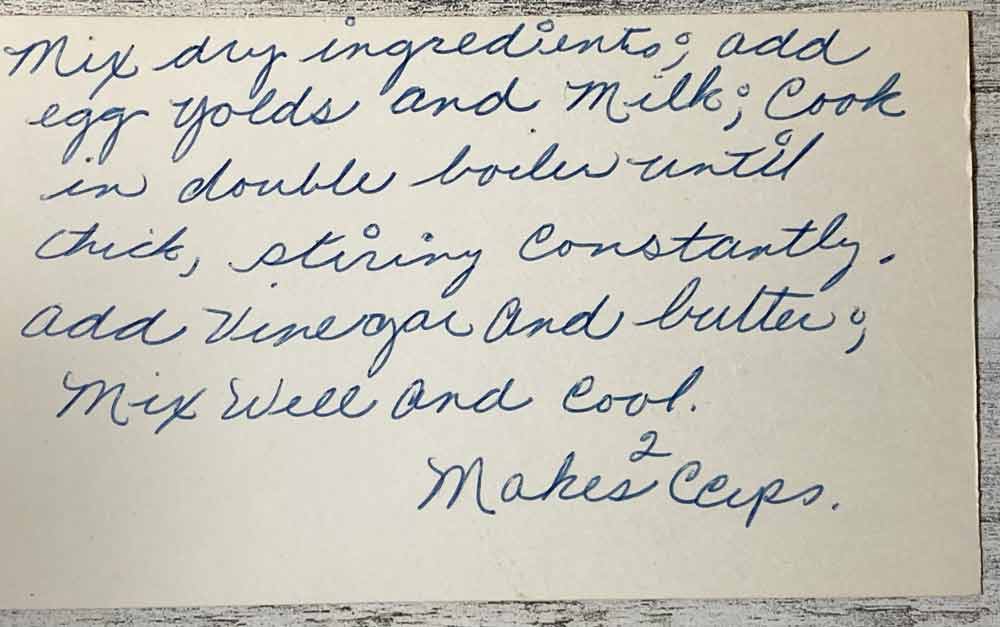 Mix dry ingredients; add
egg yolds and Milk; Cook
in double boiler until
thick, stiring Constantly.
add Vinegar And butter;
Mix Well And Cool.
Makes 2 Cups.